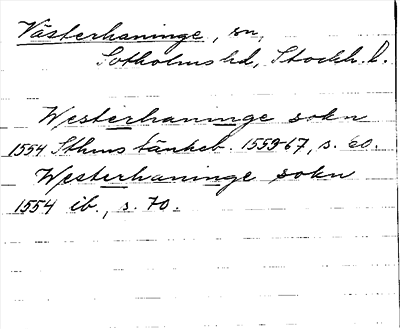 Västerhaninge, sn,
Sotholms hd, Stockh. l.
Westerhaninge sokn
1554 Sthms tänkeb. 1553-67, s. 60.
Westerhaninge sokn
1554 ib., s. 70.